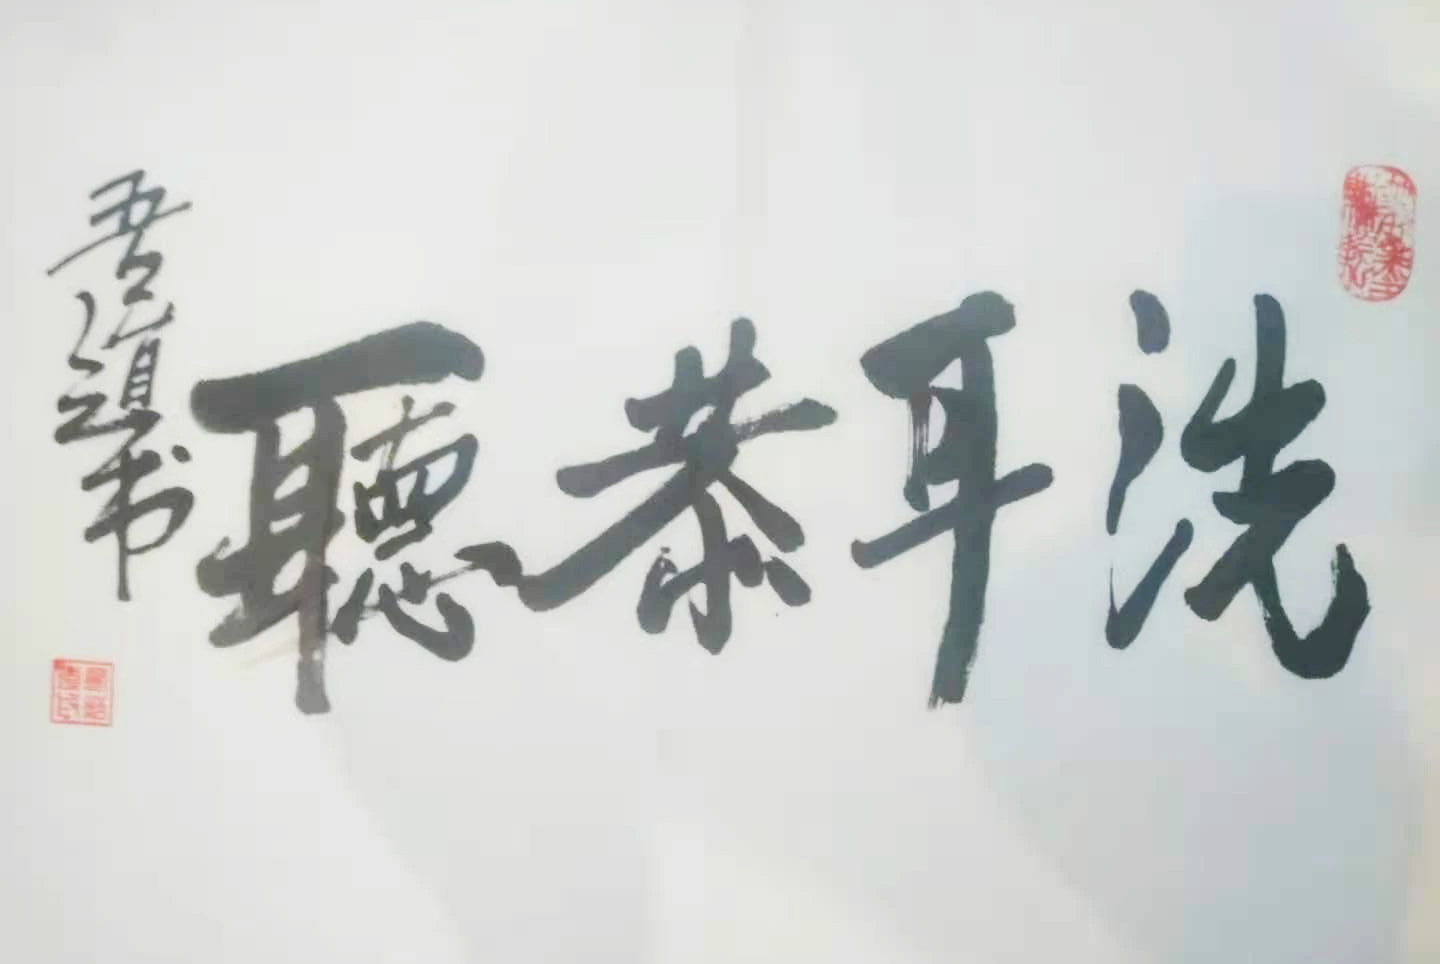 洗耳恭聽
吾道书